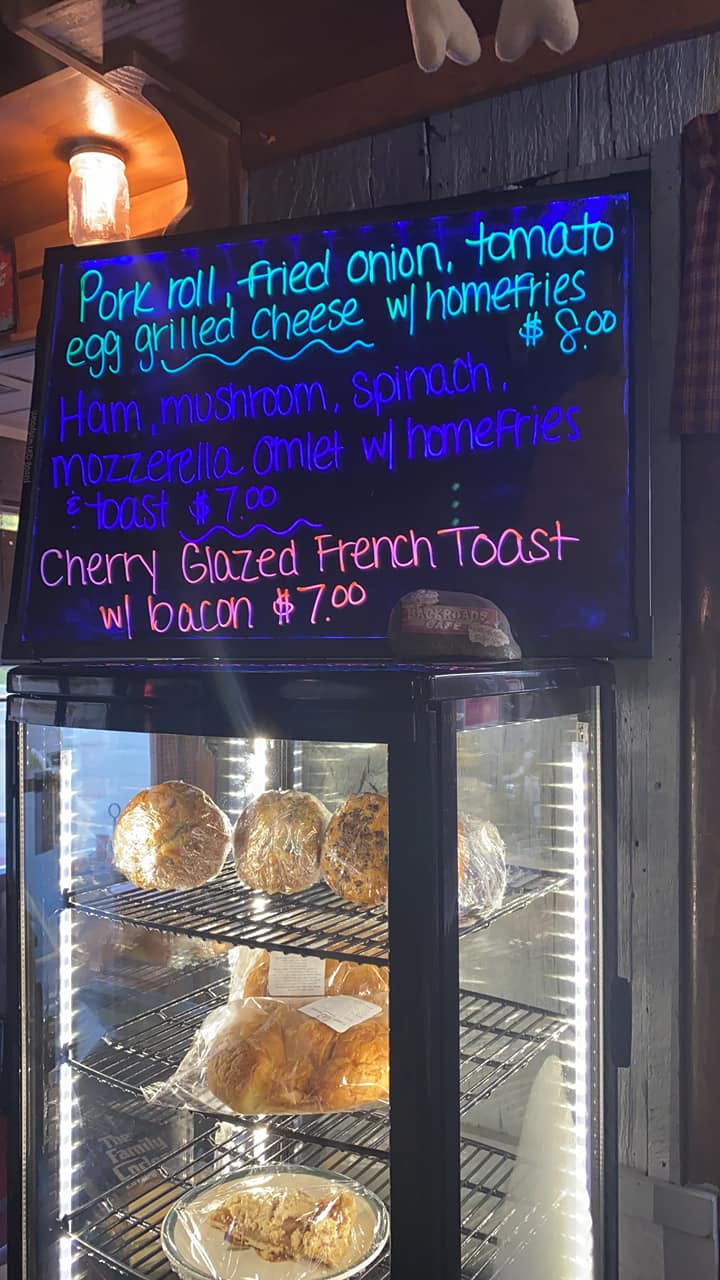 Pork roll, fried onion, tomato
egg grilled cheese w/ homefries
$ 8.00
Ham, mushroom, spinach,
mozzerella omlet w/ homefries
& toast $7.00
Cherry Glazed French Toast
w/ bacon $7.00
BACKROADS
CAFE
The
Family